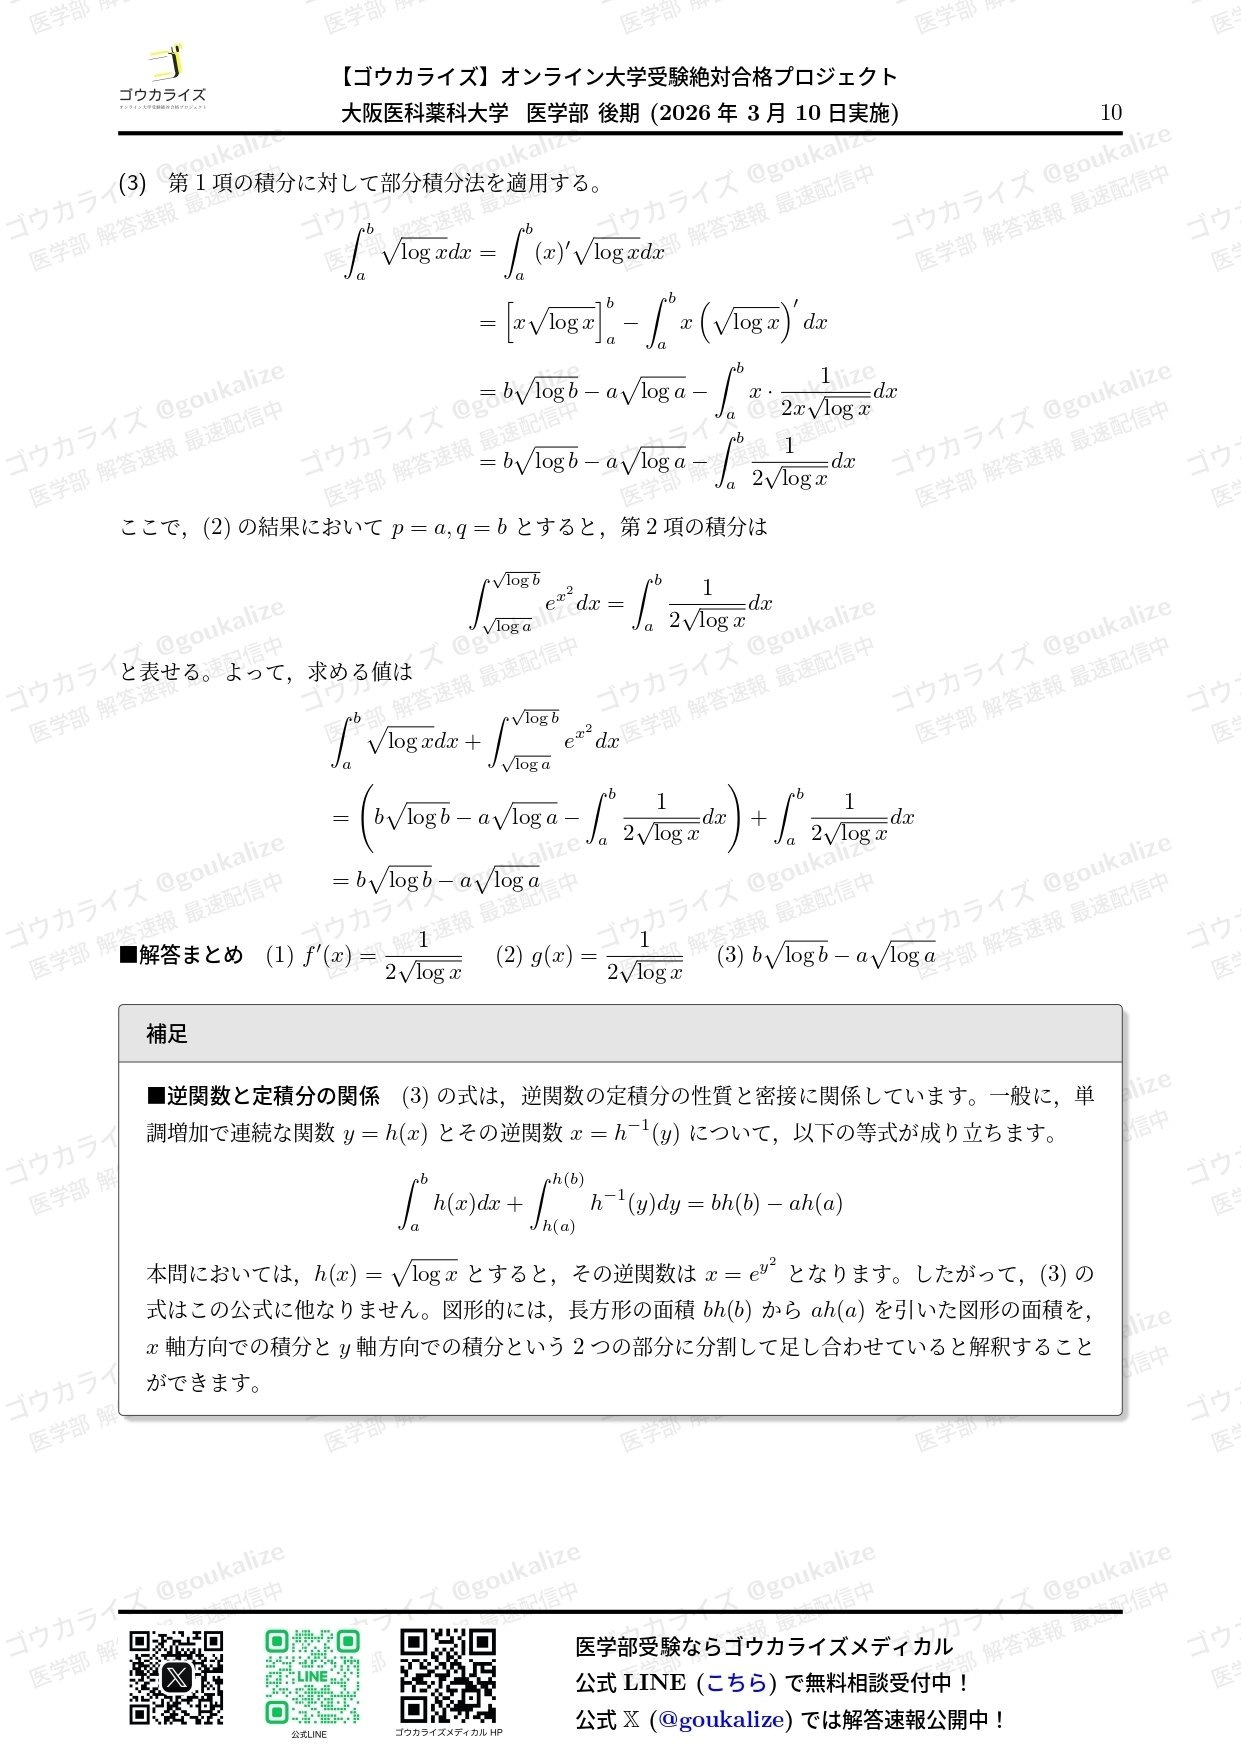 ゴウカライズ
オンライン大学受験絶対合格プロジェクト
【ゴウカライズ】オンライン大学受験絶対合格プロジェクト
大阪医科薬科大学 医学部 後期 (2026 年 3 月 10 日実施)
10
(3) 第 1 項の積分に対して部分積分法を適用する。
∫_a^b √(log x)dx = ∫_a^b (x)′√(log x)dx
= [x√(log x)]_a^b − ∫_a^b x (√(log x))′ dx
= b√(log b) − a√(log a) − ∫_a^b x · 1/(2x√(log x)) dx
= b√(log b) − a√(log a) − ∫_a^b 1/(2√(log x)) dx
ここで，(2) の結果において p = a, q = b とすると，第 2 項の積分は
∫_{√(log a)}^{√(log b)} e^{x^2} dx = ∫_a^b 1/(2√(log x)) dx
と表せる。よって，求める値は
∫_a^b √(log x)dx + ∫_{√(log a)}^{√(log b)} e^{x^2} dx
= (b√(log b) − a√(log a) − ∫_a^b 1/(2√(log x)) dx) + ∫_a^b 1/(2√(log x)) dx
= b√(log b) − a√(log a)
■解答まとめ (1) f′(x) = 1/(2√(log x)) (2) g(x) = 1/(2√(log x)) (3) b√(log b) − a√(log a)
補足
■逆関数と定積分の関係 (3) の式は，逆関数の定積分の性質と密接に関係しています。一般に，単
調増加で連続な関数 y = h(x) とその逆関数 x = h^{−1}(y) について，以下の等式が成り立ちます。
∫_a^b h(x)dx + ∫_{h(a)}^{h(b)} h^{−1}(y)dy = bh(b) − ah(a)
本問においては，h(x) = √(log x) とすると，その逆関数は x = e^{y^2} となります。したがって，(3) の
式はこの公式に他なりません。図形的には，長方形の面積 bh(b) から ah(a) を引いた図形の面積を，
x 軸方向での積分と y 軸方向での積分という 2 つの部分に分割して足し合わせていると解釈すること
ができます。
LINE
公式LINE
ゴウカライズメディカル HP
医学部受験ならゴウカライズメディカル
公式 LINE (こちら) で無料相談受付中！
公式 𝕏 (@goukalize) では解答速報公開中！
ゴウカライズ @goukalize
医学部 解答速報 最速配信中